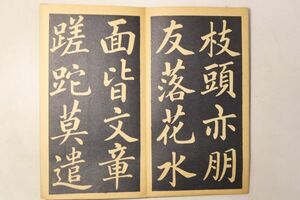 枝頭亦朋
友落花水
面皆文章
蹉跎莫遣